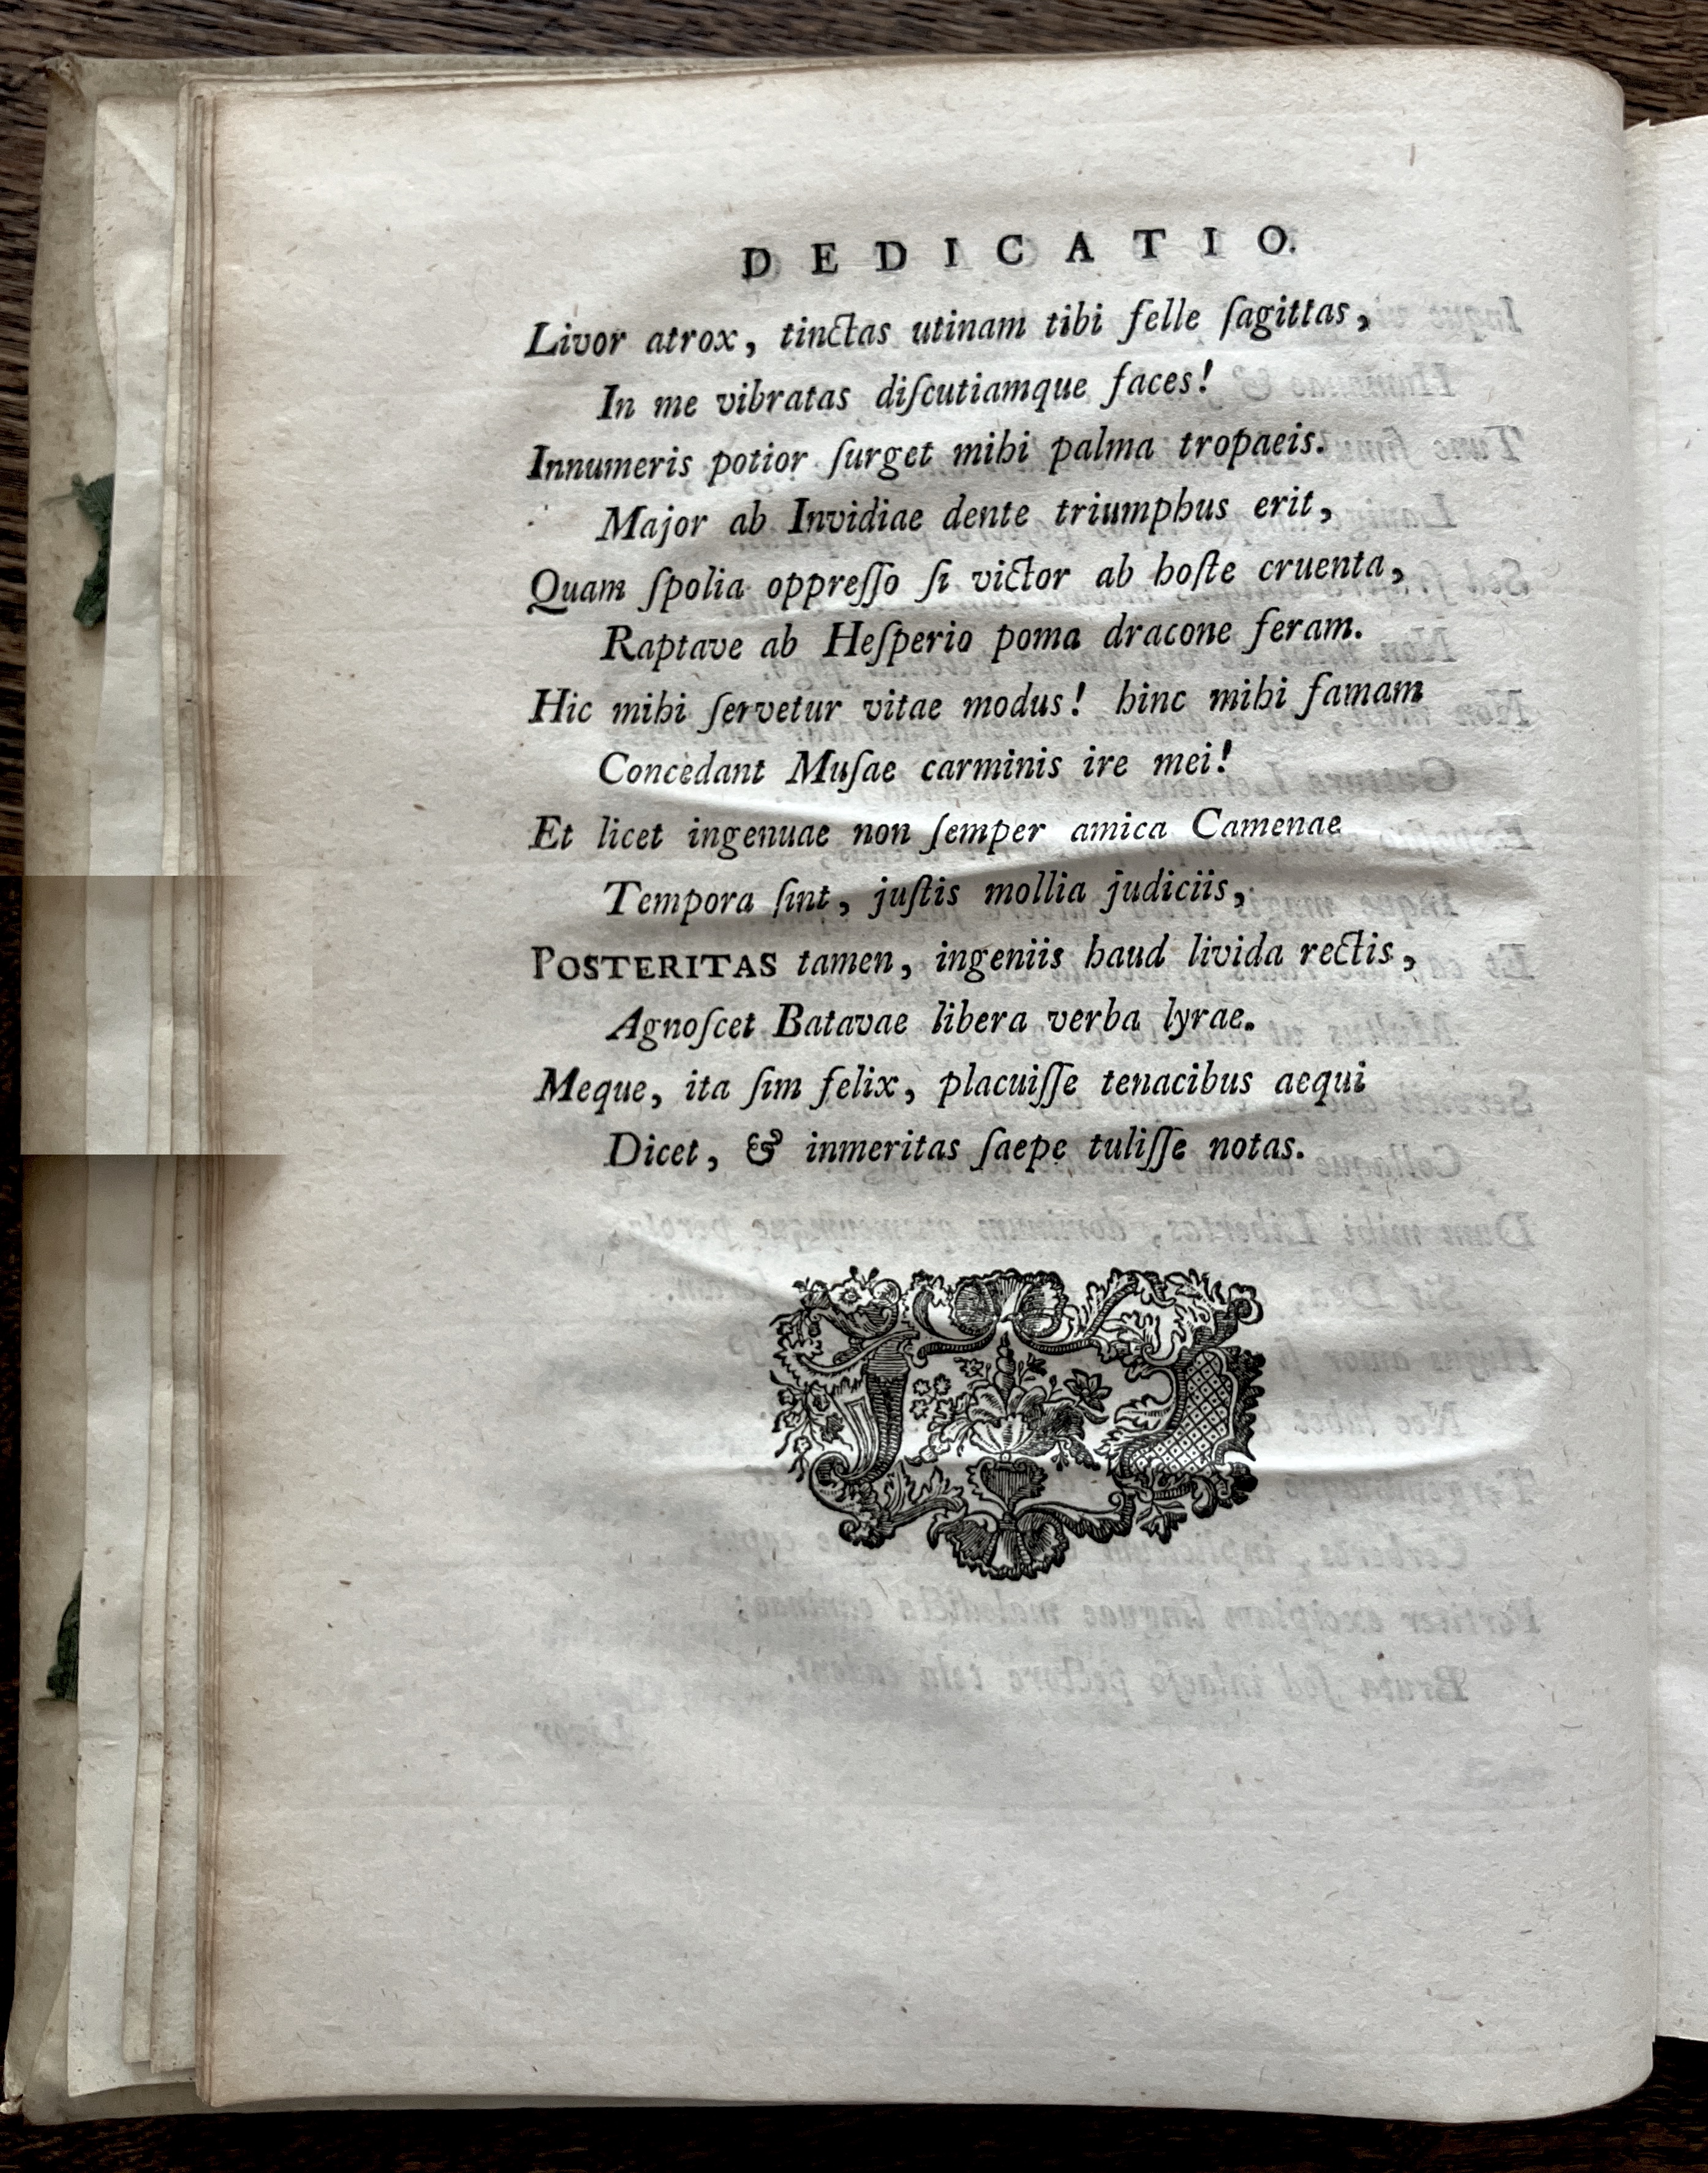 DEDICATIO.
Livor atrox, tinctas utinam tibi felle ſagittas,
In me vibratas diſcutiamque faces!
Innumeris potior ſurget mihi palma tropaeis.
Major ab Invidiae dente triumphus erit,
Quam ſpolia oppreſſo ſi victor ab hoſte cruenta,
Raptave ab Heſperio poma dracone feram.
Hic mihi ſervetur vitae modus! hinc mihi famam
Concedant Muſae carminis ire mei!
Et licet ingenuae non ſemper amica Camenae
Tempora ſint, juſtis mollia judiciis,
POSTERITAS tamen, ingeniis haud livida rectis,
Agnoſcet Batavae libera verba lyrae.
Meque, ita ſim felix, placuiſſe tenacibus aequi
Dicet, & inmeritas ſaepe tuliſſe notas.